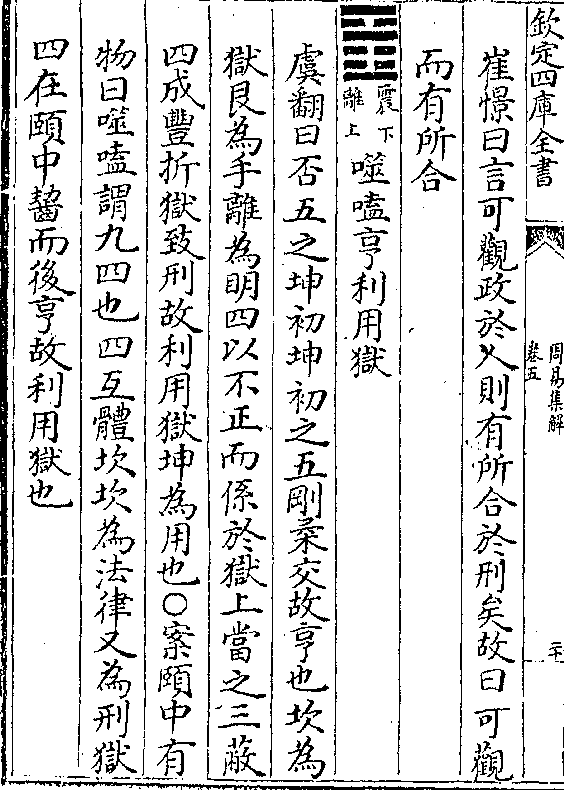 欽定四庫全書
周易集解
卷五
二十
崔憬曰言可觀政於人則有所合於刑矣故曰可觀
而有所合
震下
離上
噬嗑亨利用獄
虞翻曰否五之坤初坤初之五剛柔交故亨也坎為
獄艮為手離為明四以不正而係於獄上當之三蔽
四成豐折獄致刑故利用獄坤為用也○案頤中有
物曰噬嗑謂九四也四互體坎坎為法律又為刑獄
四在頤中齧而後亨故利用獄也